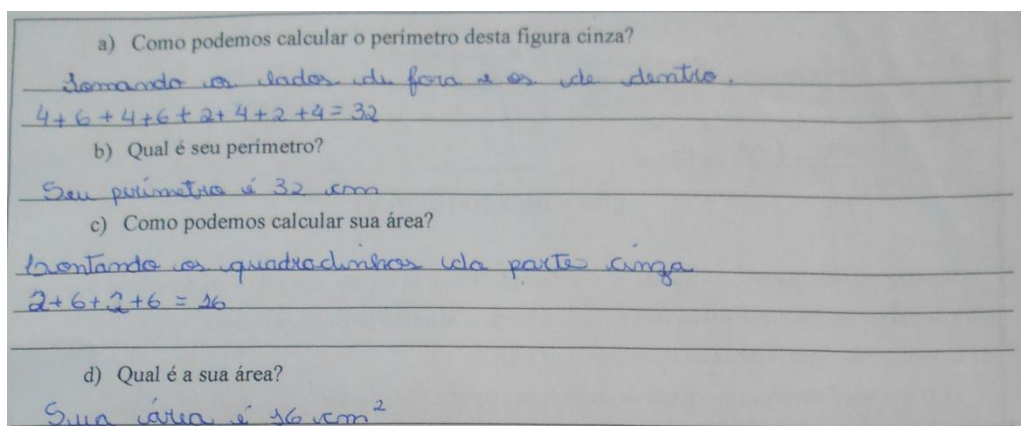 a) Como podemos calcular o perímetro desta figura cinza?
Somando os lados de fora e os de dentro.
4+6+4+6+2+4+2+4=32
b) Qual é seu perímetro?
Seu perímetro é 32 cm
c) Como podemos calcular sua área?
Contando os quadradinhos da parte cinza
2+6+2+6=16
d) Qual é a sua área?
Sua área é 16 cm²